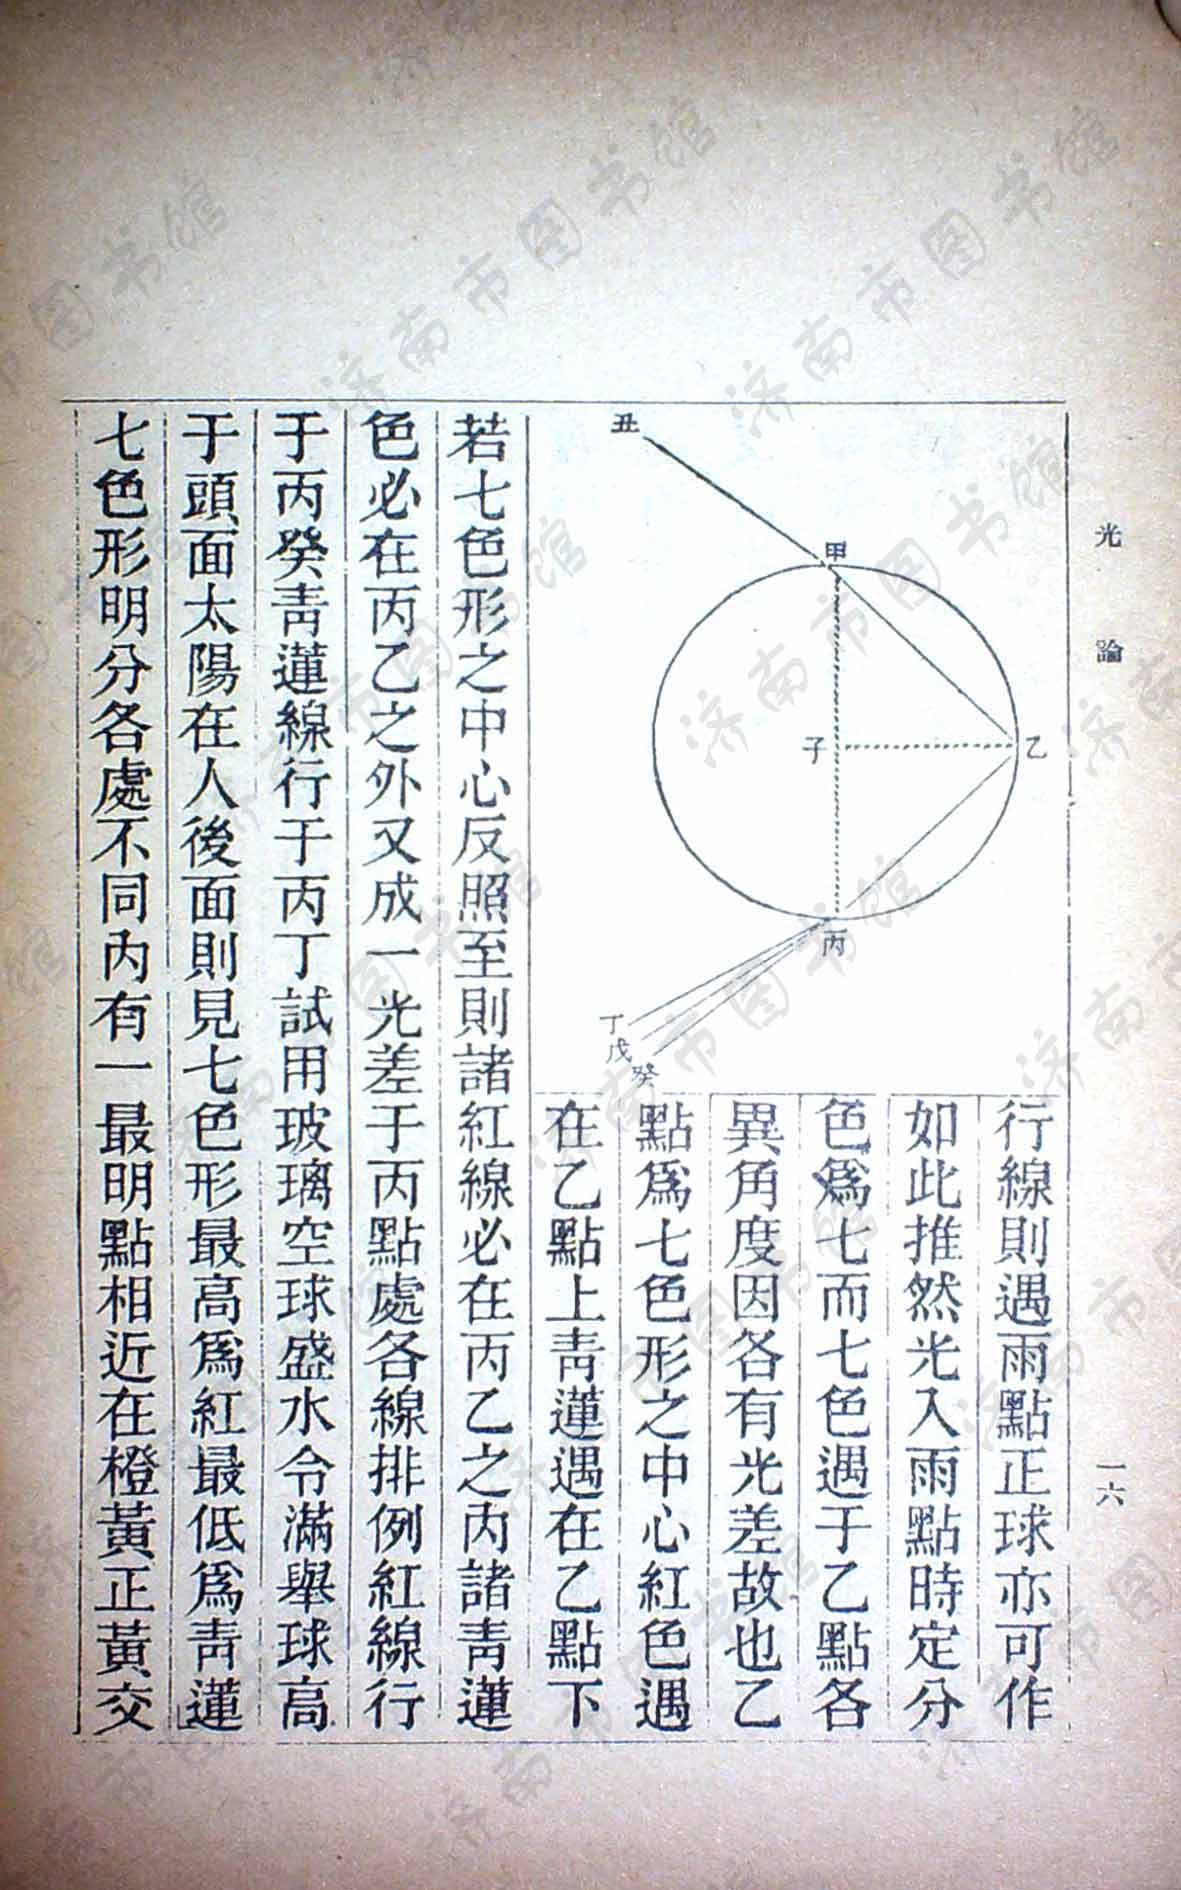 光論
一六
行線則遇雨點正球亦可作
如此推然光入雨點時定分
色爲七而七色遇于乙點各
異角度因各有光差故也乙
點爲七色形之中心紅色遇
在乙點上青蓮遇在乙點下
若七色形之中心反照至則諸紅線必在丙乙之內諸青蓮
色必在丙乙之外又成一光差于丙點處各線排例紅線行
于丙癸青蓮線行于丙丁試用玻璃空球盛水令滿舉球高
于頭面太陽在人後面則見七色形最高爲紅最低爲青蓮
七色形明分各處不同內有一最明點相近在橙黃正黃交
丑
甲
子
乙
丙
丁
戊
癸
济南市图书馆